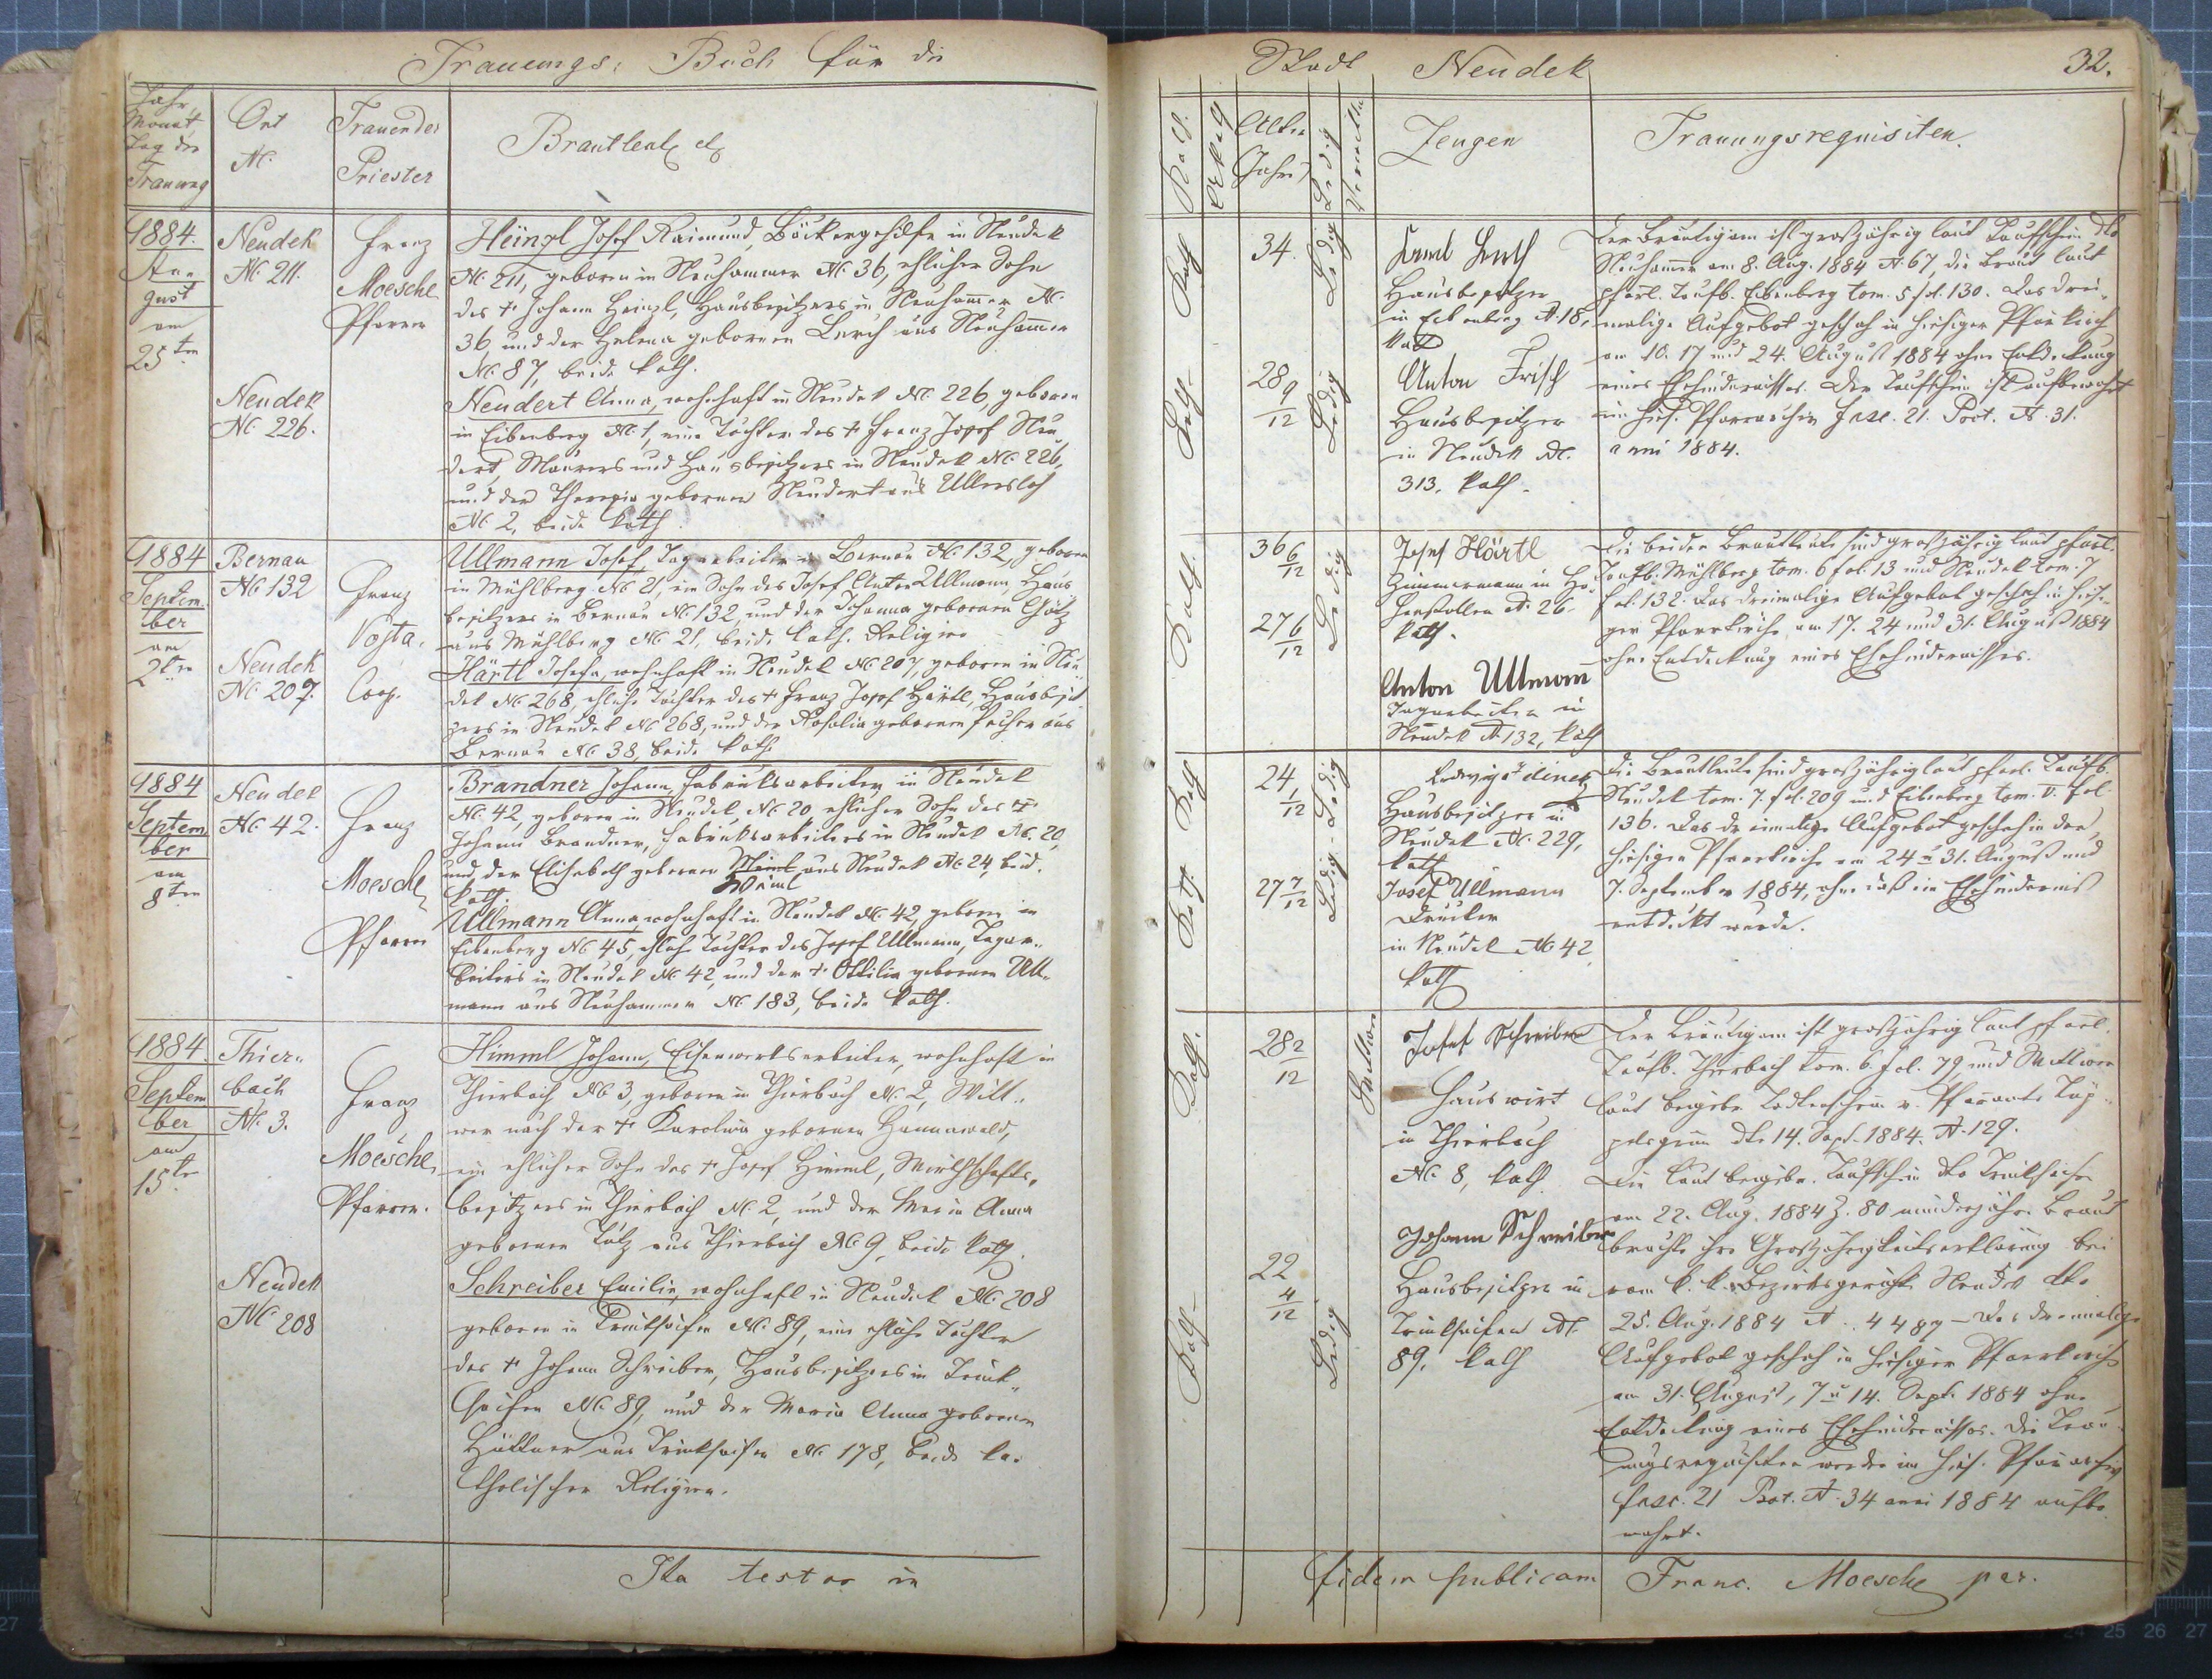 Trauungs- Buch für die
Stadt Neudek
32.
Jahr,
Monat,
Tag der
Trauung
Ort
N.
Trauender
Priester
Brautleute etc
Kath.
Akath.
Alter
(Jahre)
Ledig
Verwittw.
Zeugen
Trauungsrequisiten.
1884.
Au-
gust
am
25ten
Neudek
N. 211.
Neudek
N. 226.
Franz
Moesche
Pfarrer
Heinzl Josef Raimund, Bäckergehilfe in Neudek
N. 211, geboren in Neuhammer N. 36, ehlicher Sohn
des + Johann Heinzl, Hausbesitzers in Neuhammer N.
36 und der Helena gebornen Lerch aus Neuhammer
N. 87, beide kath.
Neudert Anna, wohnhaft in Neudek N. 226, geboren
in Eibenberg N. 1, eine Tochter des + Franz Josef Neu
dert, Maurers und Hausbesitzers in Neudek N. 226,
und der Theresia gebornen Neudert aus Ullersloh
N. 2, beide kath.
Kath
Kath
34.
28 9/12
Ledig
Ledig
Hausbesitzer
in Eibenberg N. 18,
kath
Anton Frisch
Hausbesitzer
in Neudek N.
313. kath.
Der Bräutigam ist großjährig laut Taufschein dto
Neuhammer am 8. Aug. 1884 N. 67, die Braut laut
pfarrl. Taufb. Eibenberg tom. 5 fol. 130. Das drei-
malige Aufgebot geschah in hiesiger Pfarrkirch
am 10. 17 und 24. August 1884 ohne Entdeckung
eines Ehehindernisses. Der Taufschein ist aufbewahrt
im hies. Pfarrarchiv Fasc. 21. Prot. N. 31.
anni 1884.
1884
Septem-
ber
am
2ten
Bernau
N. 132
Neudek
N. 207.
Franz
Vojta.
Coop.
Ullmann Josef, Tagarbeiter in Bernau N. 132, geboren
in Mühlberg N. 21, ein Sohn des Josef Anton Ullmann, Haus
besitzers in Bernau N. 132, und der Johanna gebornen Götz
aus Mühlberg N. 21, beide kath. Religion
Härtl Josefa, wohnhaft in Neudek N. 207, geboren in Neu
dek N. 268, ehliche Tochter des + Franz Josef Härtl, Hausbesit
zers in Neudek N. 268, und der Rosalia gebornen Fücher aus
Bernau N. 38, beide kath.
Kath.
36 6/12
27 6/12
Ledig
Josef Härtl
Zimmermann in Ho-
henstollen N. 26.
kath.
Anton Ullmann
Tagarbeiter in
Neudek N. 132, kath
Die beiden Brautleute sind großjährig laut pfarrl.
Taufb. Mühlberg tom. 6 fol. 13 und Neudek tom. 7
fol. 132. Das dreimalige Aufgebot geschah in hiesi-
ger Pfarrkirche am 17. 24 und 31. August 1884
ohne Entdeckung eines Ehehindernisses.
1884
Septem
ber
am
8ten
Neudek
N. 42.
Franz
Moesche
Pfarrer
Brandner Johann, Fabriksarbeiter in Neudek
N. 42, geboren in Neudek N. 20, ehlicher Sohn des +
Johann Brandner, Fabriksarbeiters in Neudek N. 20,
und der Elisabeth gebornen aus Neudek N. 24, beid.
kath.
Ullmann Anna, wohnhaft in Neudek N. 42, geboren in
Eibenberg N. 45, ehliche Tochter des Josef Ullmann, Tagar-
beiters in Neudek N. 42, und der + Ottilia gebornen Ull-
mann aus Neuhammer N. 183, beide kath.
Kath
Kath.
24 1/12
27 7/12
Ledig
Ledig
Hausbesitzer in
Neudek N. 229,
kath
Josef Ullmann
Drucker
in Neudek N. 42
kath
Die Brautleute sind großjährig laut pfarrl. Taufb.
Neudek tom. 7. fol. 209 und Eibenberg tom. V. fol.
136. Das dreimalige Aufgebot geschah in der
hiesigen Pfarrkirche am 24 u 31. August und
7. September 1884, ohne daß ein Ehehinderniß
entdeckt wurde.
1884
Septem
ber
am
15ten
Thier-
bach
N. 3.
Neudek
N. 208
Franz
Moesche,
Pfarrer.
Himml Johann, Eisenwerksarbeiter, wohnhaft in
Thierbach N. 3, geboren in Thierbach N. 2, Witt-
wer nach der + Karolina gebornen Hannawald,
ein ehlicher Sohn des + Josef Himml, Wirthschafts-
besitzers in Thierbach N. 2, und der Maria Anna
gebornen Lutz aus Thierbach N. 9, beide kath.
Schreiber Emilie, wohnhaft in Neudek N. 208
geboren in Trinkseifen N. 89, eine ehliche Tochter
des + Johann Schreiber, Hausbesitzers in Trink-
seifen N. 89, und der Maria Anna gebornen
Hüttner aus Trinkseifen N. 178, beide ka-
tholischer Religion.
Kath.
Kath
28 2/12
22 4/12
Wittwer
Ledig
Josef Schreiber
Hauswirt
in Thierbach
N. 8, kath
Johann Schreiber
Hausbesitzer in
Trinkseifen N.
89, kath
Der Bräutigam ist großjährig laut pfarrl.
Taufb. Thierbach tom. 6. fol. 79 und Wittwer
laut beigebr. Todtenschein v. Pfarramte Lup-
pelsgrün dto 14. Sept. 1884. N. 129.
Die laut beigebr. Taufschein dto Trinkseifen
am 22. Aug. 1884 Z. 80 minderjähr. Braut
brachte ihre Großjährigkeitserklärung bei
vom k. k. Bezirksgericht Neudek dto
25. Aug. 1884 N. 4487 – Das dreimalige
Aufgebot geschah in hiesiger Pfarrkirche
am 31. August, 7 u 14. Sept. 1884 ohne
Entdeckung eines Ehehindernisses. Die Trau-
ungsrequisiten werden im hies. Pfarrarchiv
Fasc. 21 Prot. N. 34 anni 1884 aufbe-
wahrt.
Ita testor in
fidem publicam Franc. Moesche par.